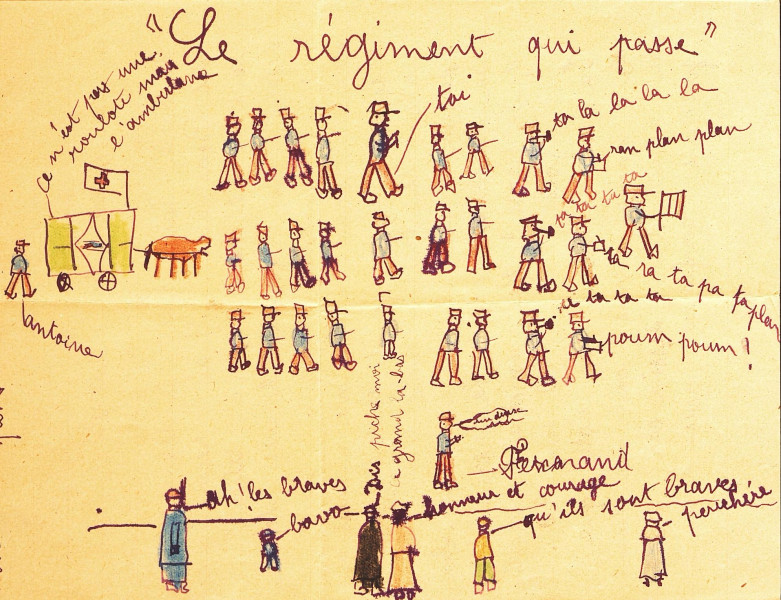 "Le régiment qui passe"
ce n'est pas une
roulote mais
l'ambulance
toi
ta la la la la
ran plan plan
ta ta ta ta
ta ra ta pa ta plan
ta ta ta
poum poum!
antoine
Dis puche moi
ce grand là-bas
Ferdinand
ah! les braves
bavo
honneur et courage
qu'ils sont braves
peuchère